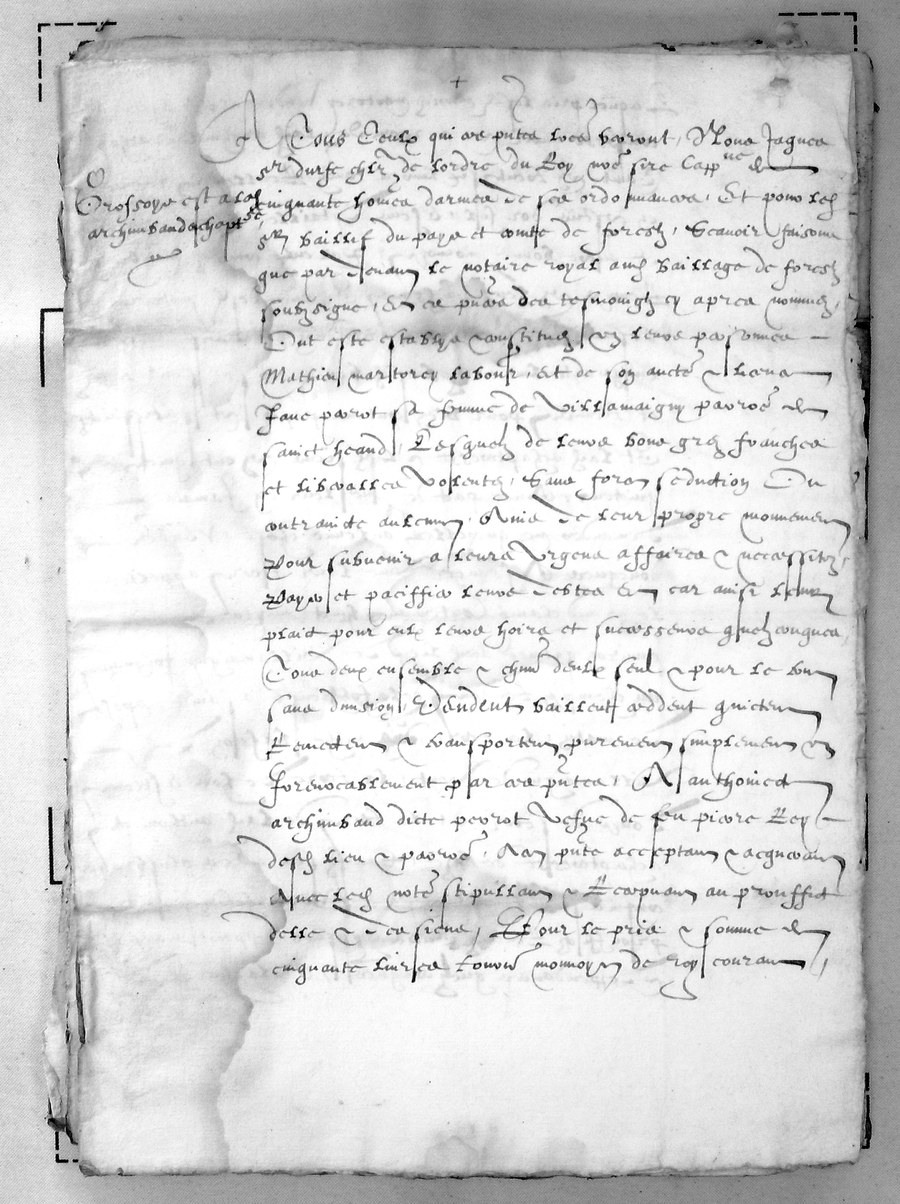 +
A Tous Ceulx qui ces pntes lres verront, Nous Jaques
sgr durfe chlr de lordre du Roy nre sire Capp^ne de
cinquante homes darmes de ses ordonnances, Et pour led
sgr baillif du pays et conte de forestz, Scavoir faisons
Grossoye est a lad
archimbaude
que par devant le notaire royal aud bailliage de forestz
soubzsigne, En ces pnces des tesmoingtz cy apres nommez,
Ont este establys constituez en leurs personnes
Mathieu martorey labour, et de son aucte & licence
Jane perrot sa femme de Villamaigny parroe de
sainct heand, Lesquelz de leurs bons grez franches
et liberalles volontez, Sans force seduction Ou
contraincte aulcune, Ains de leur propre mouvement
Pour subvenir a leurs Urgens affaires & necessitez,
Payer et paciffier leurs debtes Et car ainsi leur
plaict pour eulx leurs hoirs et successeurs quelzconques,
Tous deux ensemble & chun deulx seul & pour le tout
sans division, Vendent baillent ceddent quictent
Remectent & transportent purement simplement &
Irrevocablement par ces pntes, A anthonie
archimbaud dicte perrot vefve de feu pierre Rey
desd lieu & parroe, Aan pnte acceptant & acquerant
Avec led notre stipullant & Recepvant au prouffict
delle & des siens, Pour le pris & somme de
cinquante livres tournois monnoye de roy courant,